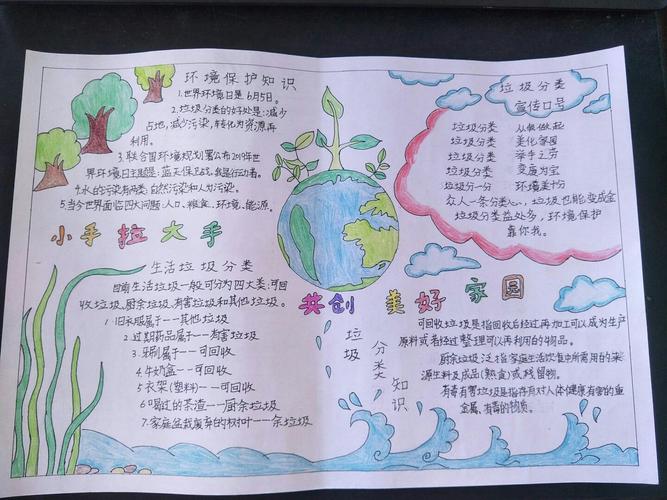 环境保护知识
1.世界环境日是6月5日。
2.垃圾分类的好处是:减少
占地,减少污染,转化为资源再
利用。
3.联合国环境规划署公布2019年世
界环境日主题是:蓝天保卫战,我是行动者。
4.水的污染有两类:自然污染和人为污染。
5.当今世界面临四大问题:人口、粮食、环境、能源。
小手拉大手
生活垃圾分类
目前生活垃圾一般可分为四大类:可回
收垃圾、厨余垃圾、有害垃圾和其他垃圾。
1旧衣服属于——其他垃圾
2过期药品属于——有害垃圾
3.牙刷属于——可回收
4.牛奶盒——可回收
5衣架(塑料)——可回收
6喝过的茶渣——厨余垃圾
7.家庭盆栽废弃的树叶——余垃圾
垃圾分类
宣传口号
垃圾分类 从我做起
垃圾分类 美化家园
垃圾分类 举手之劳
垃圾分类 变废为宝
垃圾分一分 环境美十分
众人一条分类心,垃圾也能变成金
垃圾分类益处多,环境保护
靠你我。
共创美好家园
垃圾分类知识
可回收垃圾是指回收后经过再加工可以成为生产
原料或者经过整理可以再利用的物品。
厨余垃圾泛指家庭生活饮食中所需用的来
源生料及成品(熟食)或残留物。
有毒有害垃圾是指存有对人体健康有害的重
金属、有毒的物质。